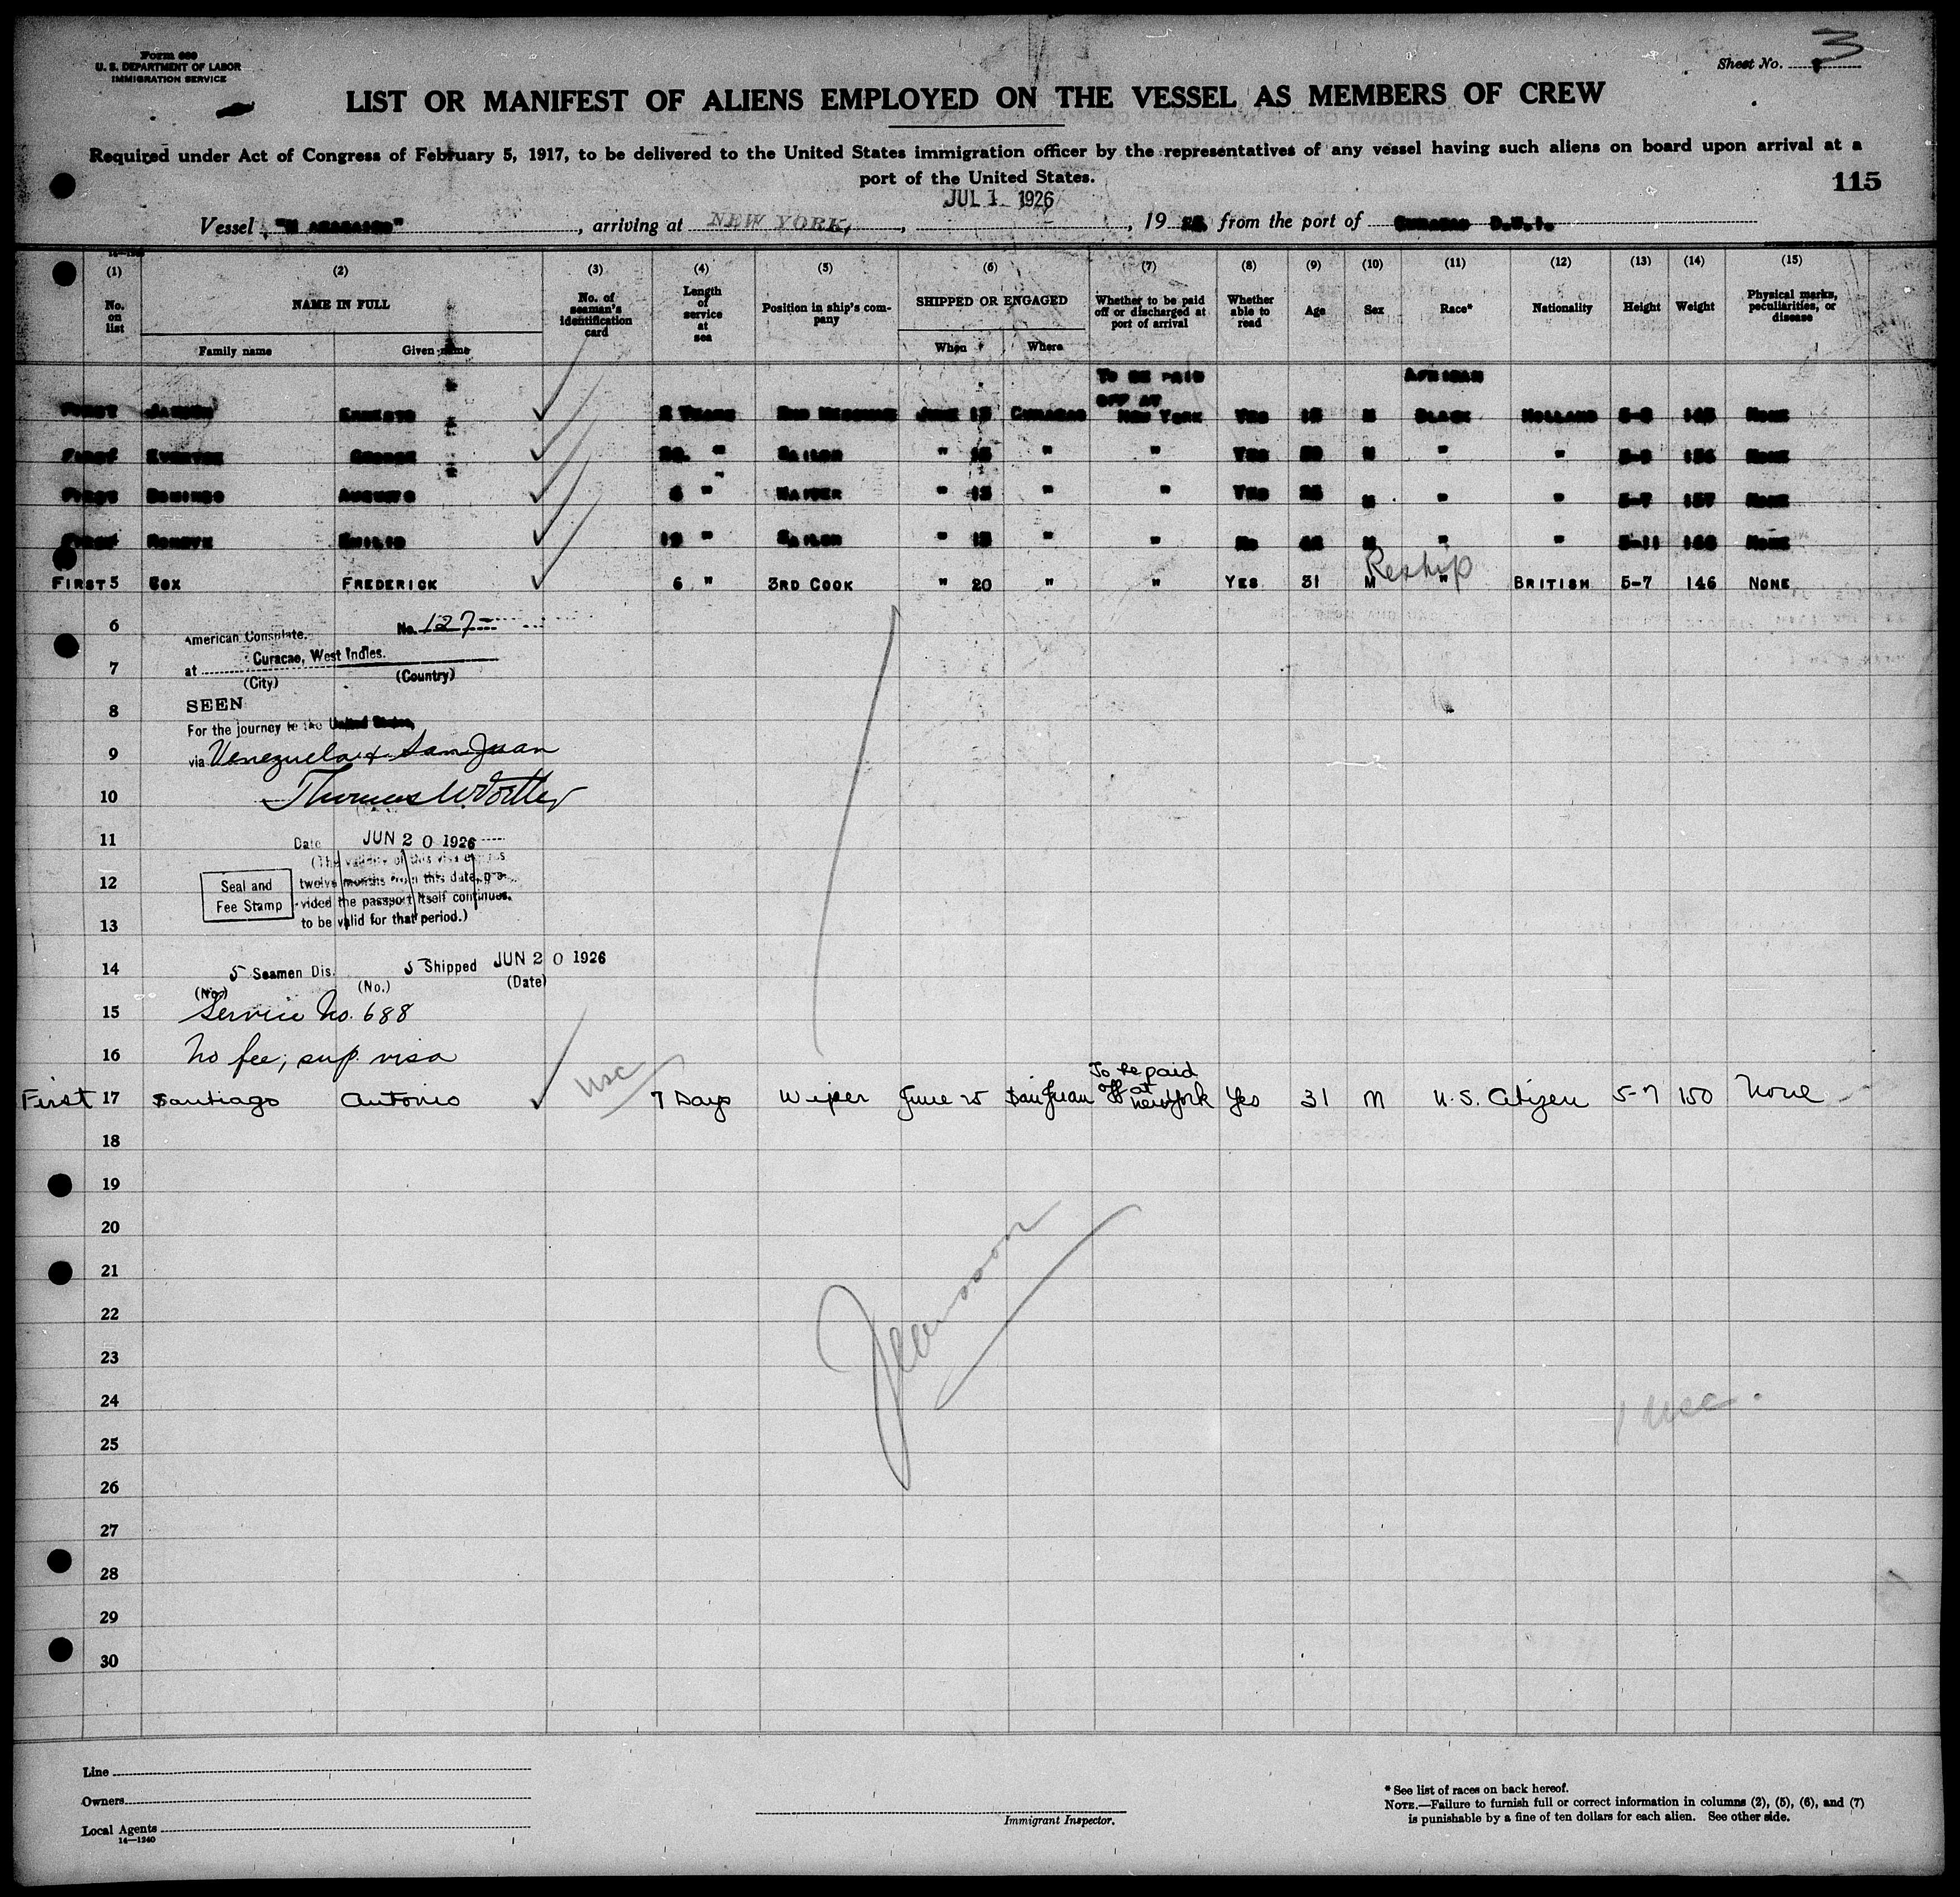 Form 680
U. S. DEPARTMENT OF LABOR
IMMIGRATION SERVICE
Sheet No. 3
LIST OR MANIFEST OF ALIENS EMPLOYED ON THE VESSEL AS MEMBERS OF CREW
Required under Act of Congress of February 5, 1917, to be delivered to the United States immigration officer by the representatives of any vessel having such aliens on board upon arrival at a
port of the United States.
115
JUL 1 1926
Vessel , arriving at NEW YORK, , 19 from the port of CURACAO D.W.I.
(1) (2) (3) (4) (5) (6) (7) (8) (9) (10) (11) (12) (13) (14) (15)
No. on list NAME IN FULL No. of seaman's identification card Length of service at sea Position in ship's company SHIPPED OR ENGAGED Whether to be paid off or discharged at port of arrival Whether able to read Age Sex Race* Nationality Height Weight Physical marks, peculiarities, or disease
Family name Given name When Where
TO BE PAID AFRICAN
OFF AT
FIRST ERNESTO YEARS JUNE CURACAO NEW YORK YES M BLACK HOLLAND NONE
FIRST GEORGE " SAILOR " " " YES M " " NONE
FIRST DOMINGO AUGUSTO 6 " " " " YES M " " 5-7 157 NONE
FIRST EMILIO " SAILOR " " " NO M " " 5-11 NONE
Reship
FIRST 5 COX FREDERICK 6 " 3RD COOK " 20 " " YES 31 M " BRITISH 5-7 146 NONE
6
American Consulate. No. 127
7
at Curacao, West Indies.
(City) (Country)
8
SEEN
For the journey to the United States,
9
via Venezuela & San Juan
10
11
Date JUN 20 1926
(The validity of this visa expires
12
twelve months from this date, pro-
Seal and Fee Stamp
vided the passport itself continues
13
to be valid for that period.)
14
5 Seamen Dis. 5 Shipped JUN 20 1926
(No.) (No.) (Date)
15
Service No. 688
16
No fee; sup. visa
USC
To be paid
off at
First 17 Santiago Antonio 7 Days Wiper June 25 San Juan New York Yes 31 M U.S. Citizen 5-7 150 None
18
19
20
21
22
23
24
25
26
27
28
29
30
Line
Owners
Local Agents
14—1240
Immigrant Inspector.
* See list of races on back hereof.
NOTE.—Failure to furnish full or correct information in columns (2), (5), (6), and (7)
is punishable by a fine of ten dollars for each alien. See other side.